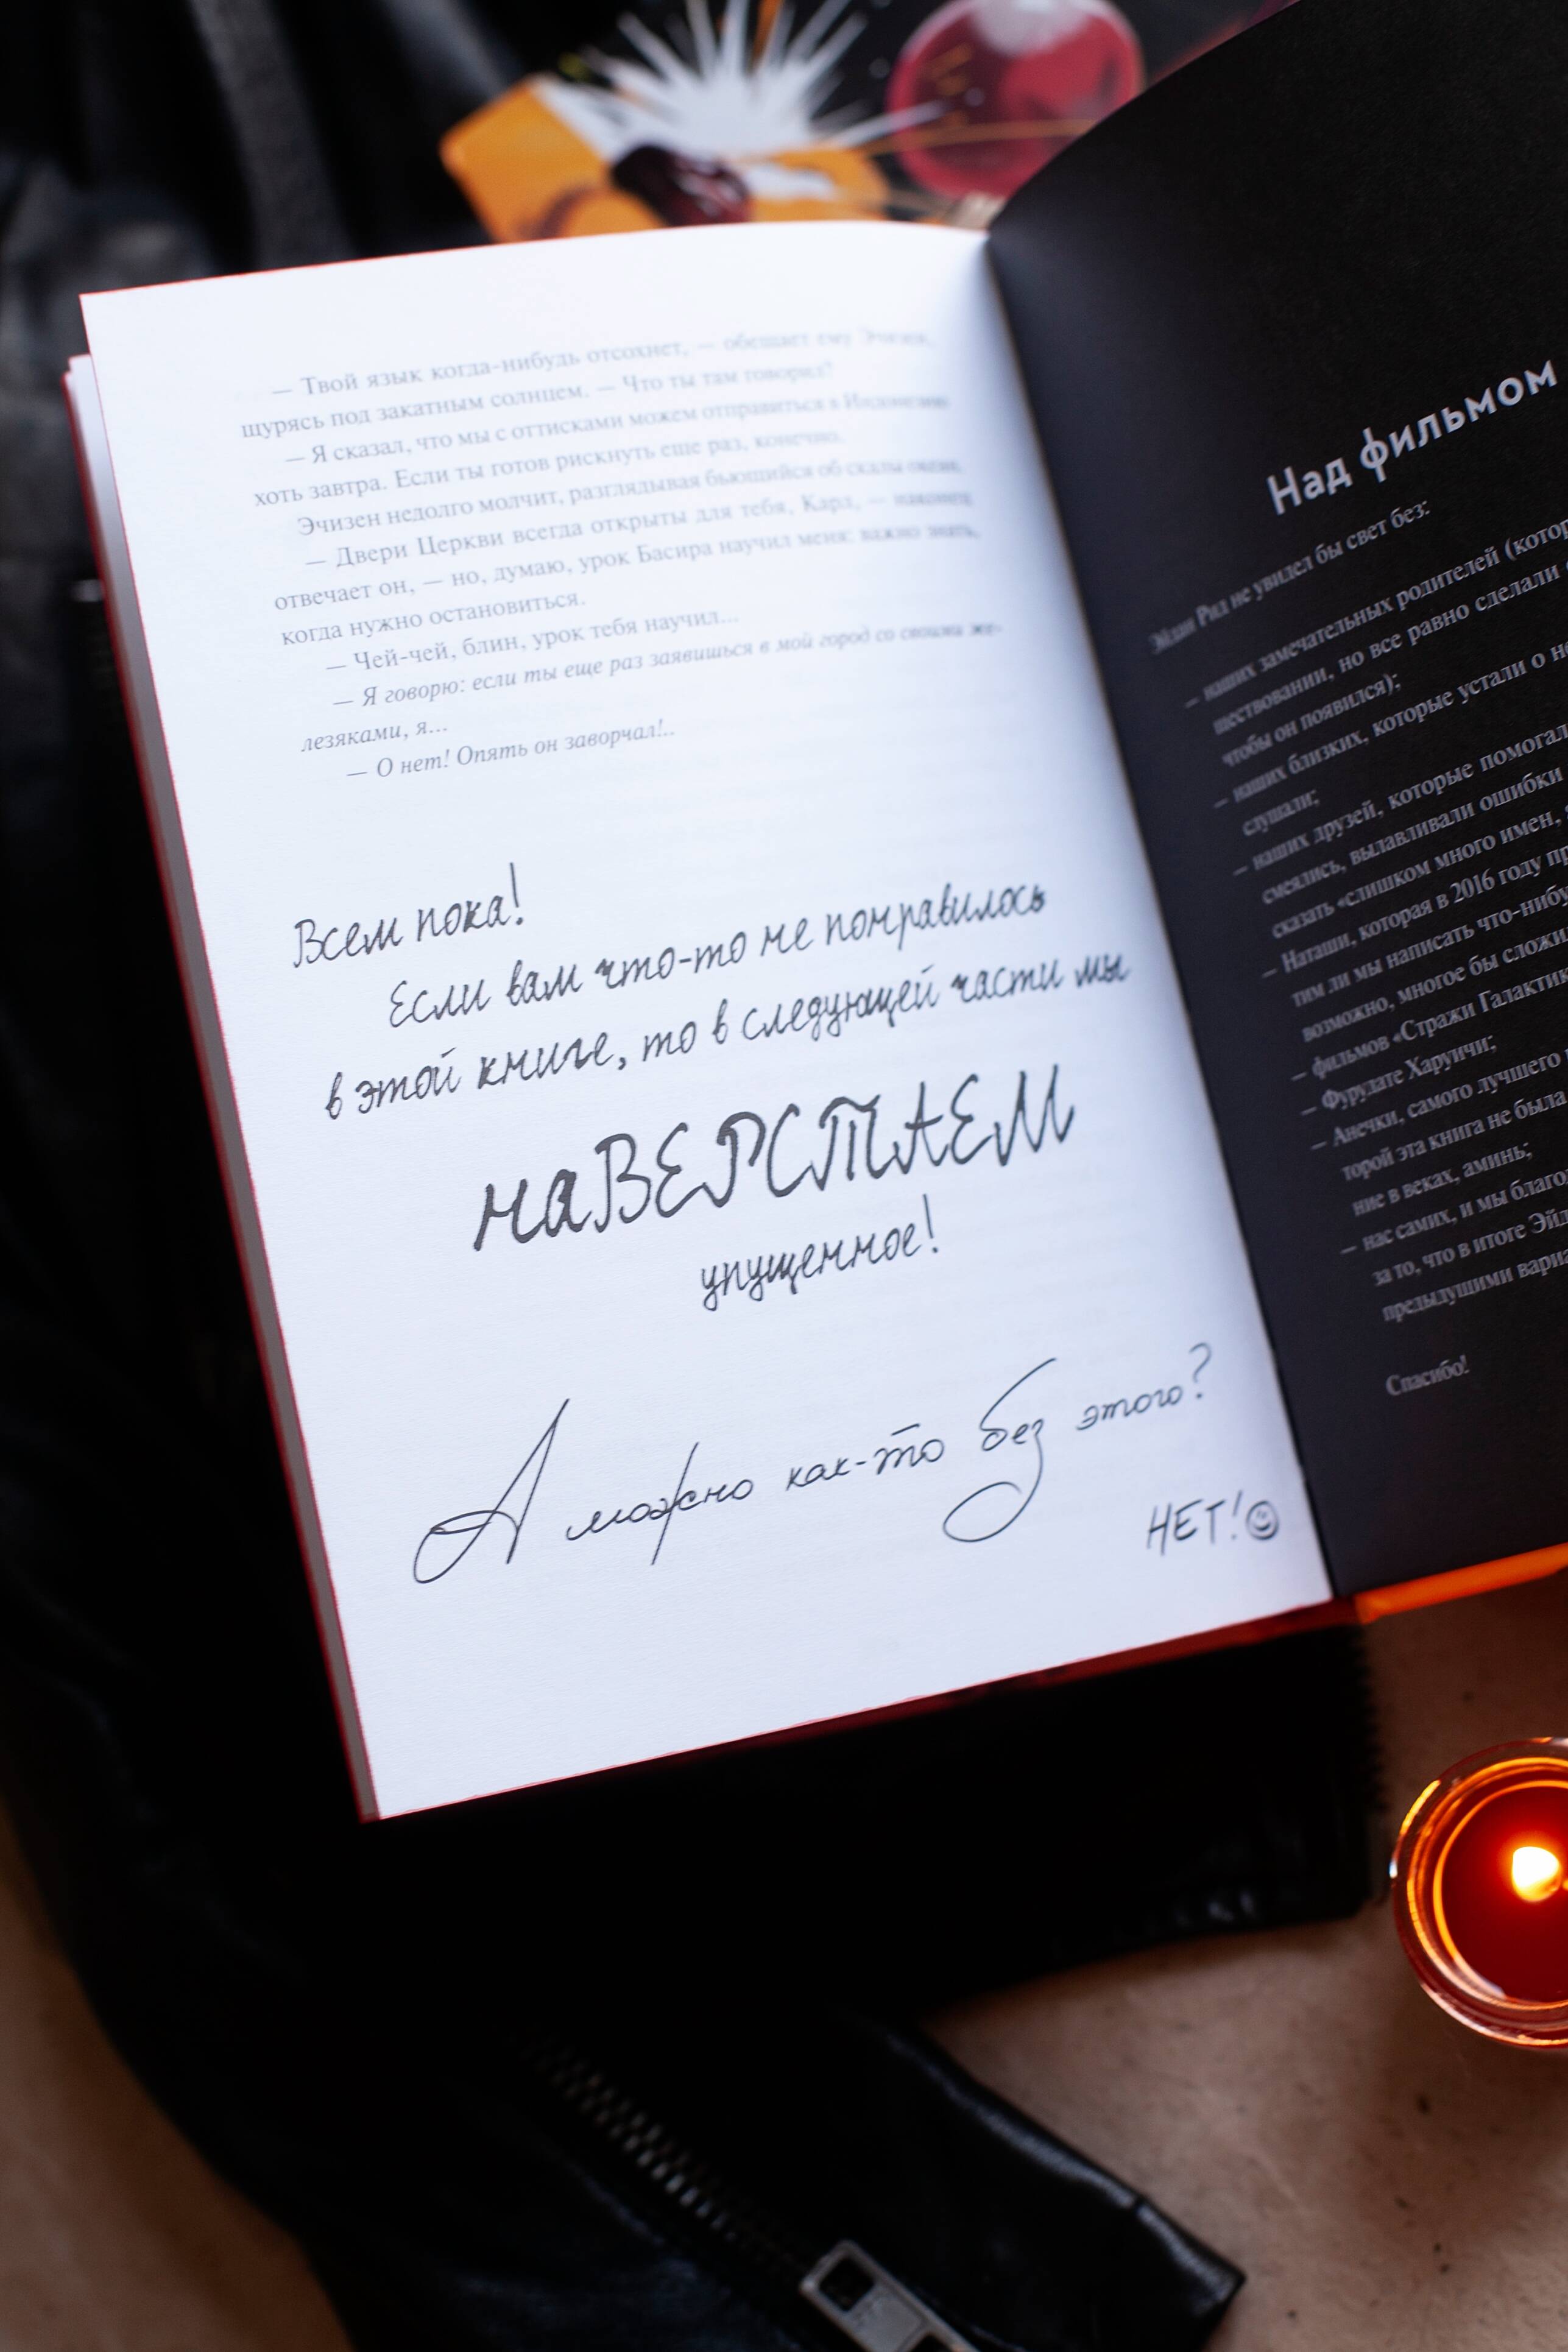 — Твой язык когда-нибудь отсохнет, — обещает ему Эчизен,
щурясь под закатным солнцем. — Что ты там говорил?
— Я сказал, что мы с оттисками можем отправиться в Индонезию
хоть завтра. Если ты готов рискнуть еще раз, конечно.
Эчизен недолго молчит, разглядывая бьющийся об скалы океан.
— Двери Церкви всегда открыты для тебя, Карл, — наконец
отвечает он, — но, думаю, урок Басира научил меня: важно знать,
когда нужно остановиться.
— Чей-чей, блин, урок тебя научил...
— Я говорю: если ты еще раз заявишься в мой город со своими же-
лезяками, я...
— О нет! Опять он заворчал!..
Всем пока!
Если вам что-то не понравилось
в этой книге, то в следующей части мы
наВЕРСТАЕМ
упущенное!
А можно как-то без этого?
НЕТ!☺
Над фильмом
Эйдан Рид не увидел бы свет без:
— наших замечательных родителей (котор
ществовании, но все равно сделали
чтобы он появился);
— наших близких, которые устали о не
слушали;
— наших друзей, которые помогал
смеялись, вылавливали ошибки
сказать «слишком много имен,
— Наташи, которая в 2016 году пр
тим ли мы написать что-нибу
возможно, многое бы сложи
— фильмов «Стражи Галактик
— Фурудате Харуичи;
— Анечки, самого лучшего
торой эта книга не была
ние в веках, аминь;
— нас самих, и мы благо
за то, что в итоге Эйд
предыдущими вариа
Спасибо!